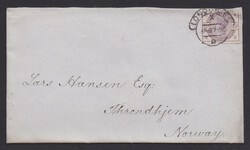 Lars Hansen Esq.
Throndhjem
Norway.